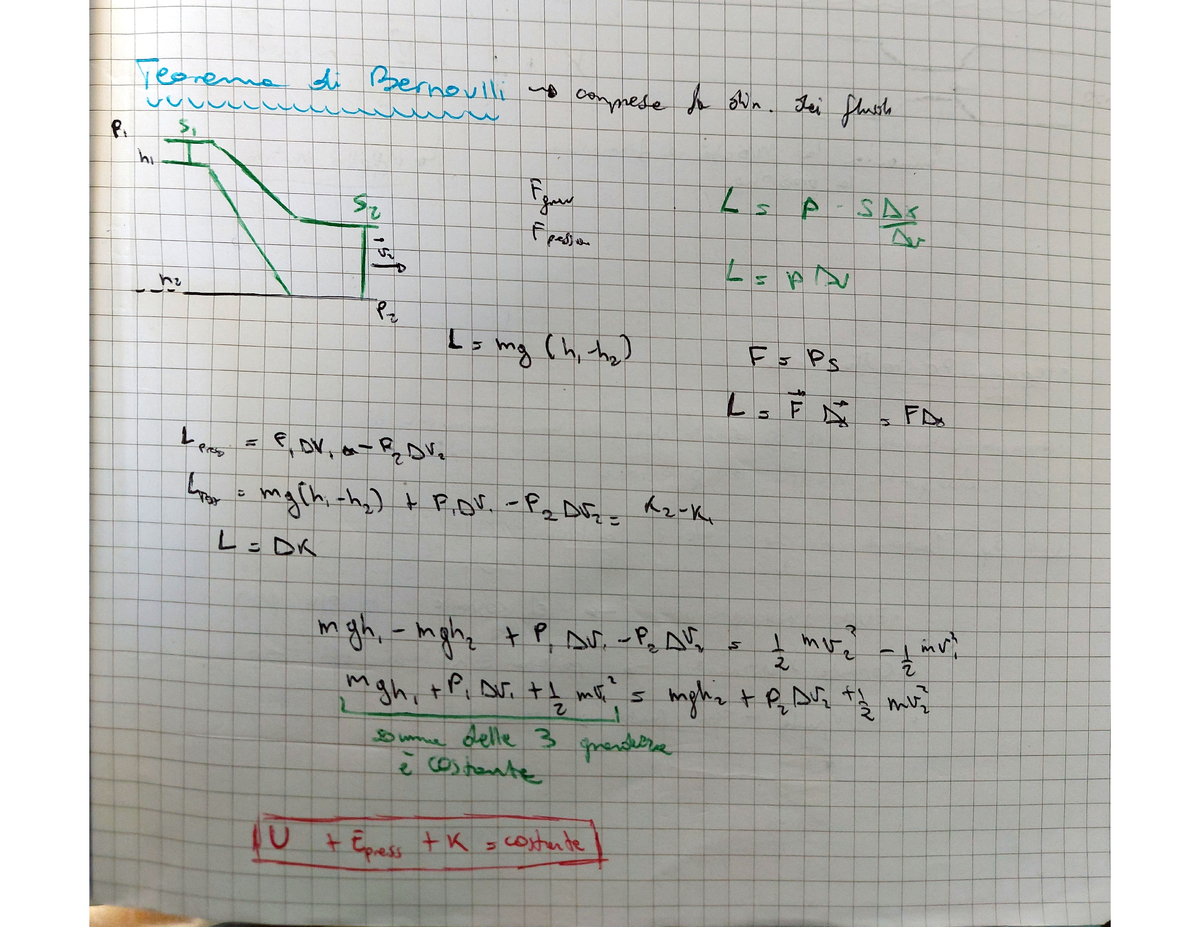 Teorema di Bernoulli → comprese la din. dei fluidi
P₁ S₁
h₁
S₂
v⃗₂
h₂
P₂
F grav
F pressione
L = p · S Δs
Δv
L = p Δv
L = mg (h₁-h₂)
F = PS
L = F⃗ Δs⃗ = FΔs
L press = P₁ΔV₁ - P₂ΔV₂
L tot = mg(h₁-h₂) + P₁ΔV₁ - P₂ΔV₂ = K₂-K₁
L = ΔK
mgh₁ - mgh₂ + P₁ΔV₁ - P₂ΔV₂ = 1/2 mv₂² - 1/2 mv₁²
mgh₁ + P₁ΔV₁ + 1/2 mv₁² = mgh₂ + P₂ΔV₂ + 1/2 mv₂²
somma delle 3 grandezze
è costante
U + Epress + K = costante